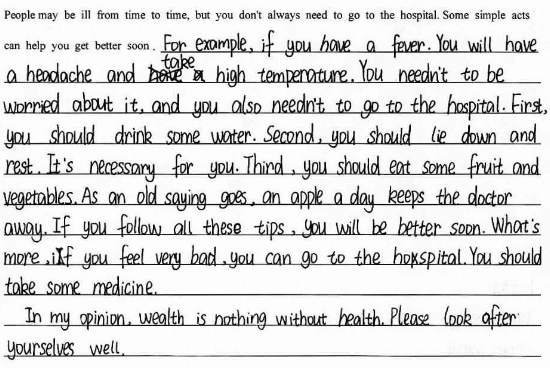 People may be ill from time to time, but you don't always need to go to the hospital. Some simple acts
can help you get better soon. For example, if you have a fever. You will have
a headache and take high temperature. You needn't to be
worried about it, and you also needn't to go to the hospital. First,
you should drink some water. Second, you should lie down and
rest. It's necessary for you. Third, you should eat some fruit and
vegetables. As an old saying goes, an apple a day keeps the doctor
away. If you follow all these tips, you will be better soon. What's
more, if you feel very bad, you can go to the hospital. You should
take some medicine.
In my opinion, wealth is nothing without health. Please look after
yourselves well.